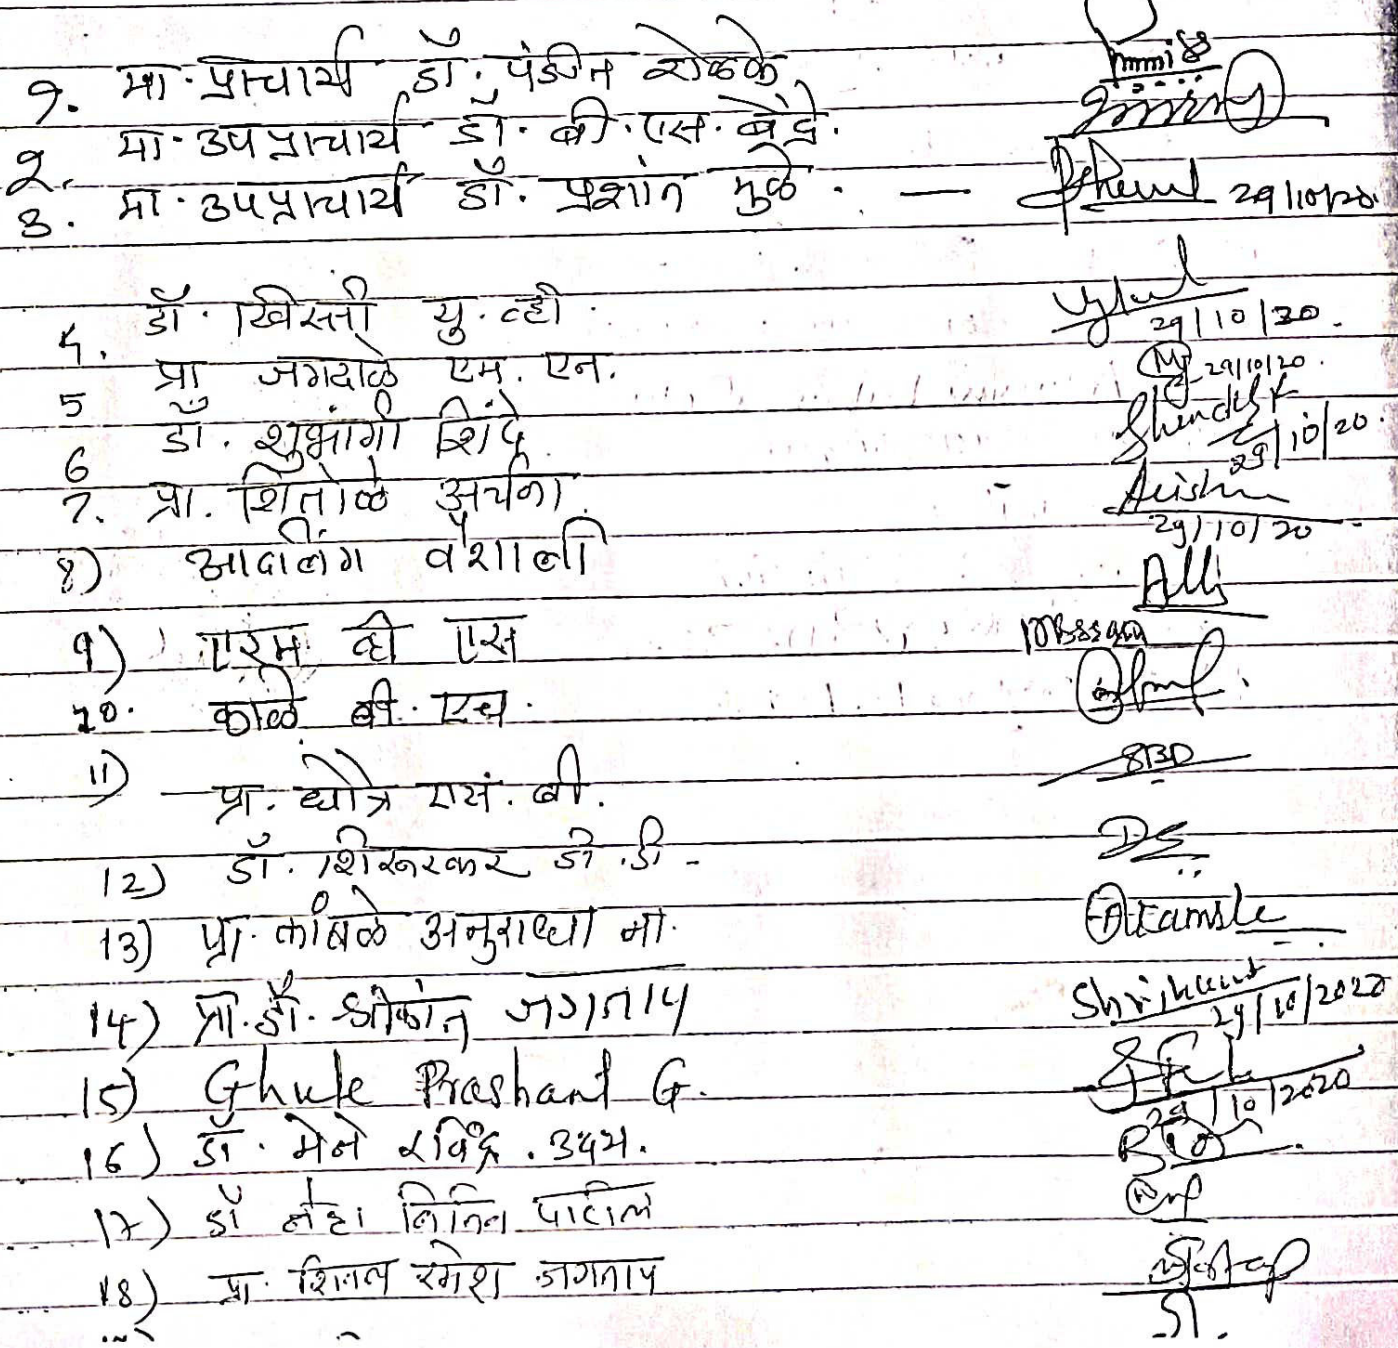 १. मा. प्राचार्य डॉ. पंडीत शेळके
२. मा. उपप्राचार्य डॉ. बी. एस. बेंद्रे.
3. मा. उपप्राचार्य डॉ. प्रशांत मुळे. — 29/10/20.
4. डॉ. खिस्ती यु. व्ही. 29/10/20.
5 प्रा जगदाळे एम. एन. 29/10/20.
6 डॉ. शुभांगी शिंदे 29/10/20.
7. प्रा. शितोळे अर्चना. 29/10/20
8) आदलिंग वैशाली
9) एरम व्ही एस
10. काळे बी. एच.
11) प्रा. धोत्रे एस. बी. SBD
12) डॉ. शिरूरकर डी. डी -
13) प्रा. कांबळे अनुराधा ना. AKamble
14) प्रा. डॉ. श्रीकांत जगताप Shrikant 29/10/2020
15) Ghule Prashant G. 29/10/2020
16) डॉ. मेने रविंद्र. उदय.
17) डॉ नेहा नितिन पाटील
18) प्रा. शितल रमेश जगताप